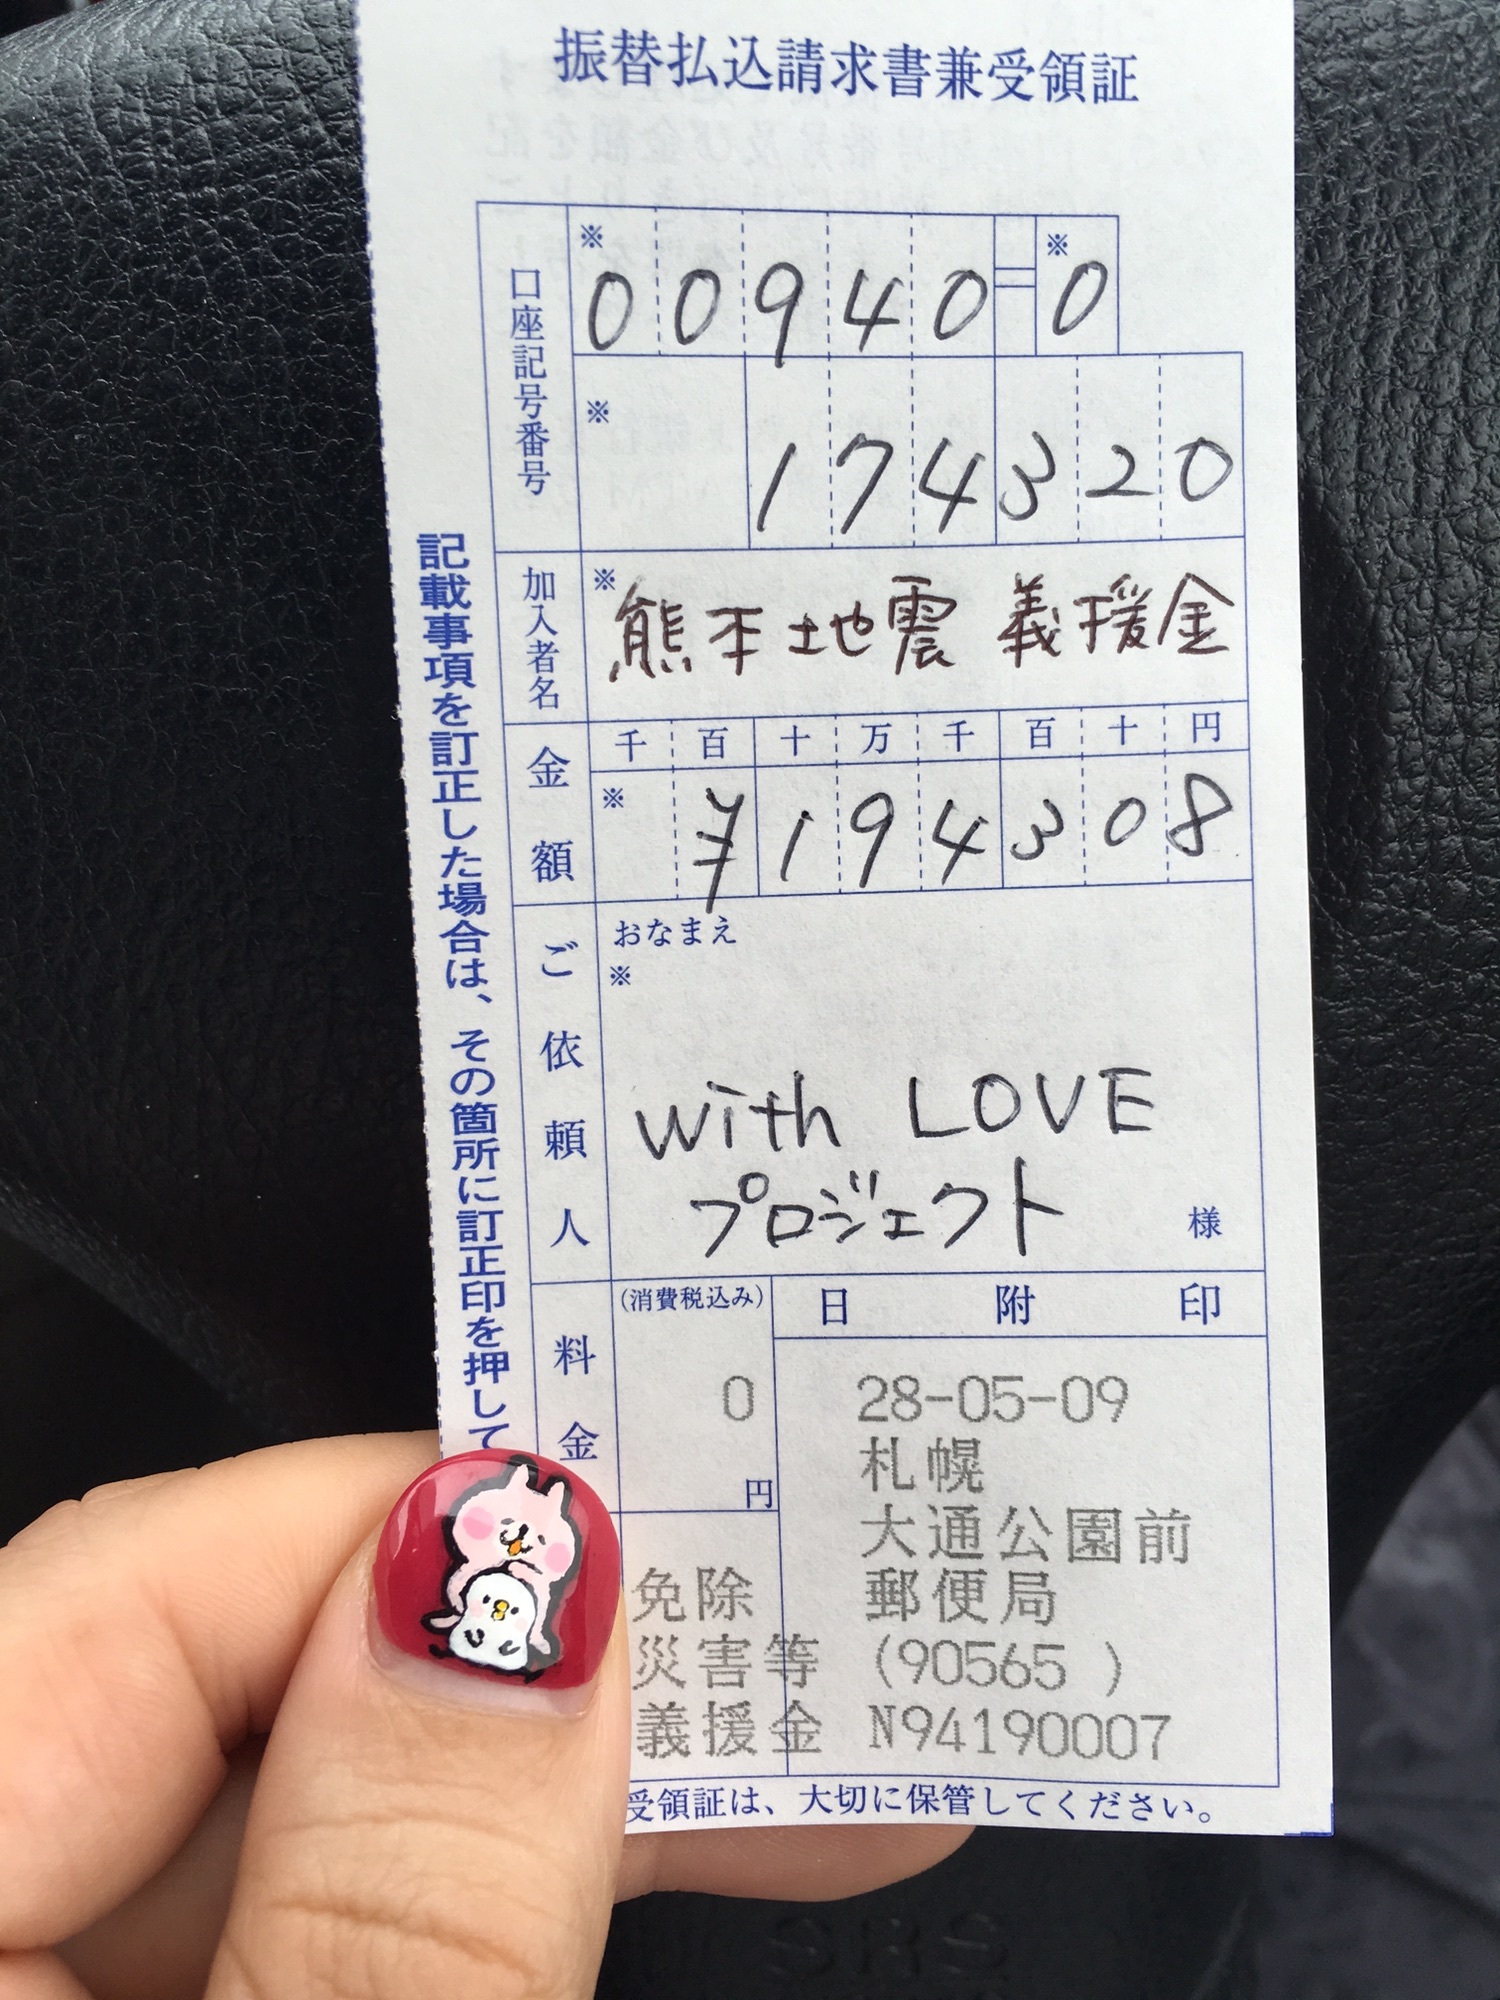 振替払込請求書兼受領証
口座記号番号
※
00940=0
※
※
174320
加入者名
※
熊本地震 義援金
金額
千百十万千百十円
※
¥194308
ご依頼人
おなまえ
※
with LOVE
プロジェクト
様
料金
(消費税込み)
0
円
日附印
28-05-09
札幌
大通公園前
郵便局
(90565 )
N94190007
免除
災害等
義援金
記載事項を訂正した場合は、その箇所に訂正印を押して
受領証は、大切に保管してください。
SRS